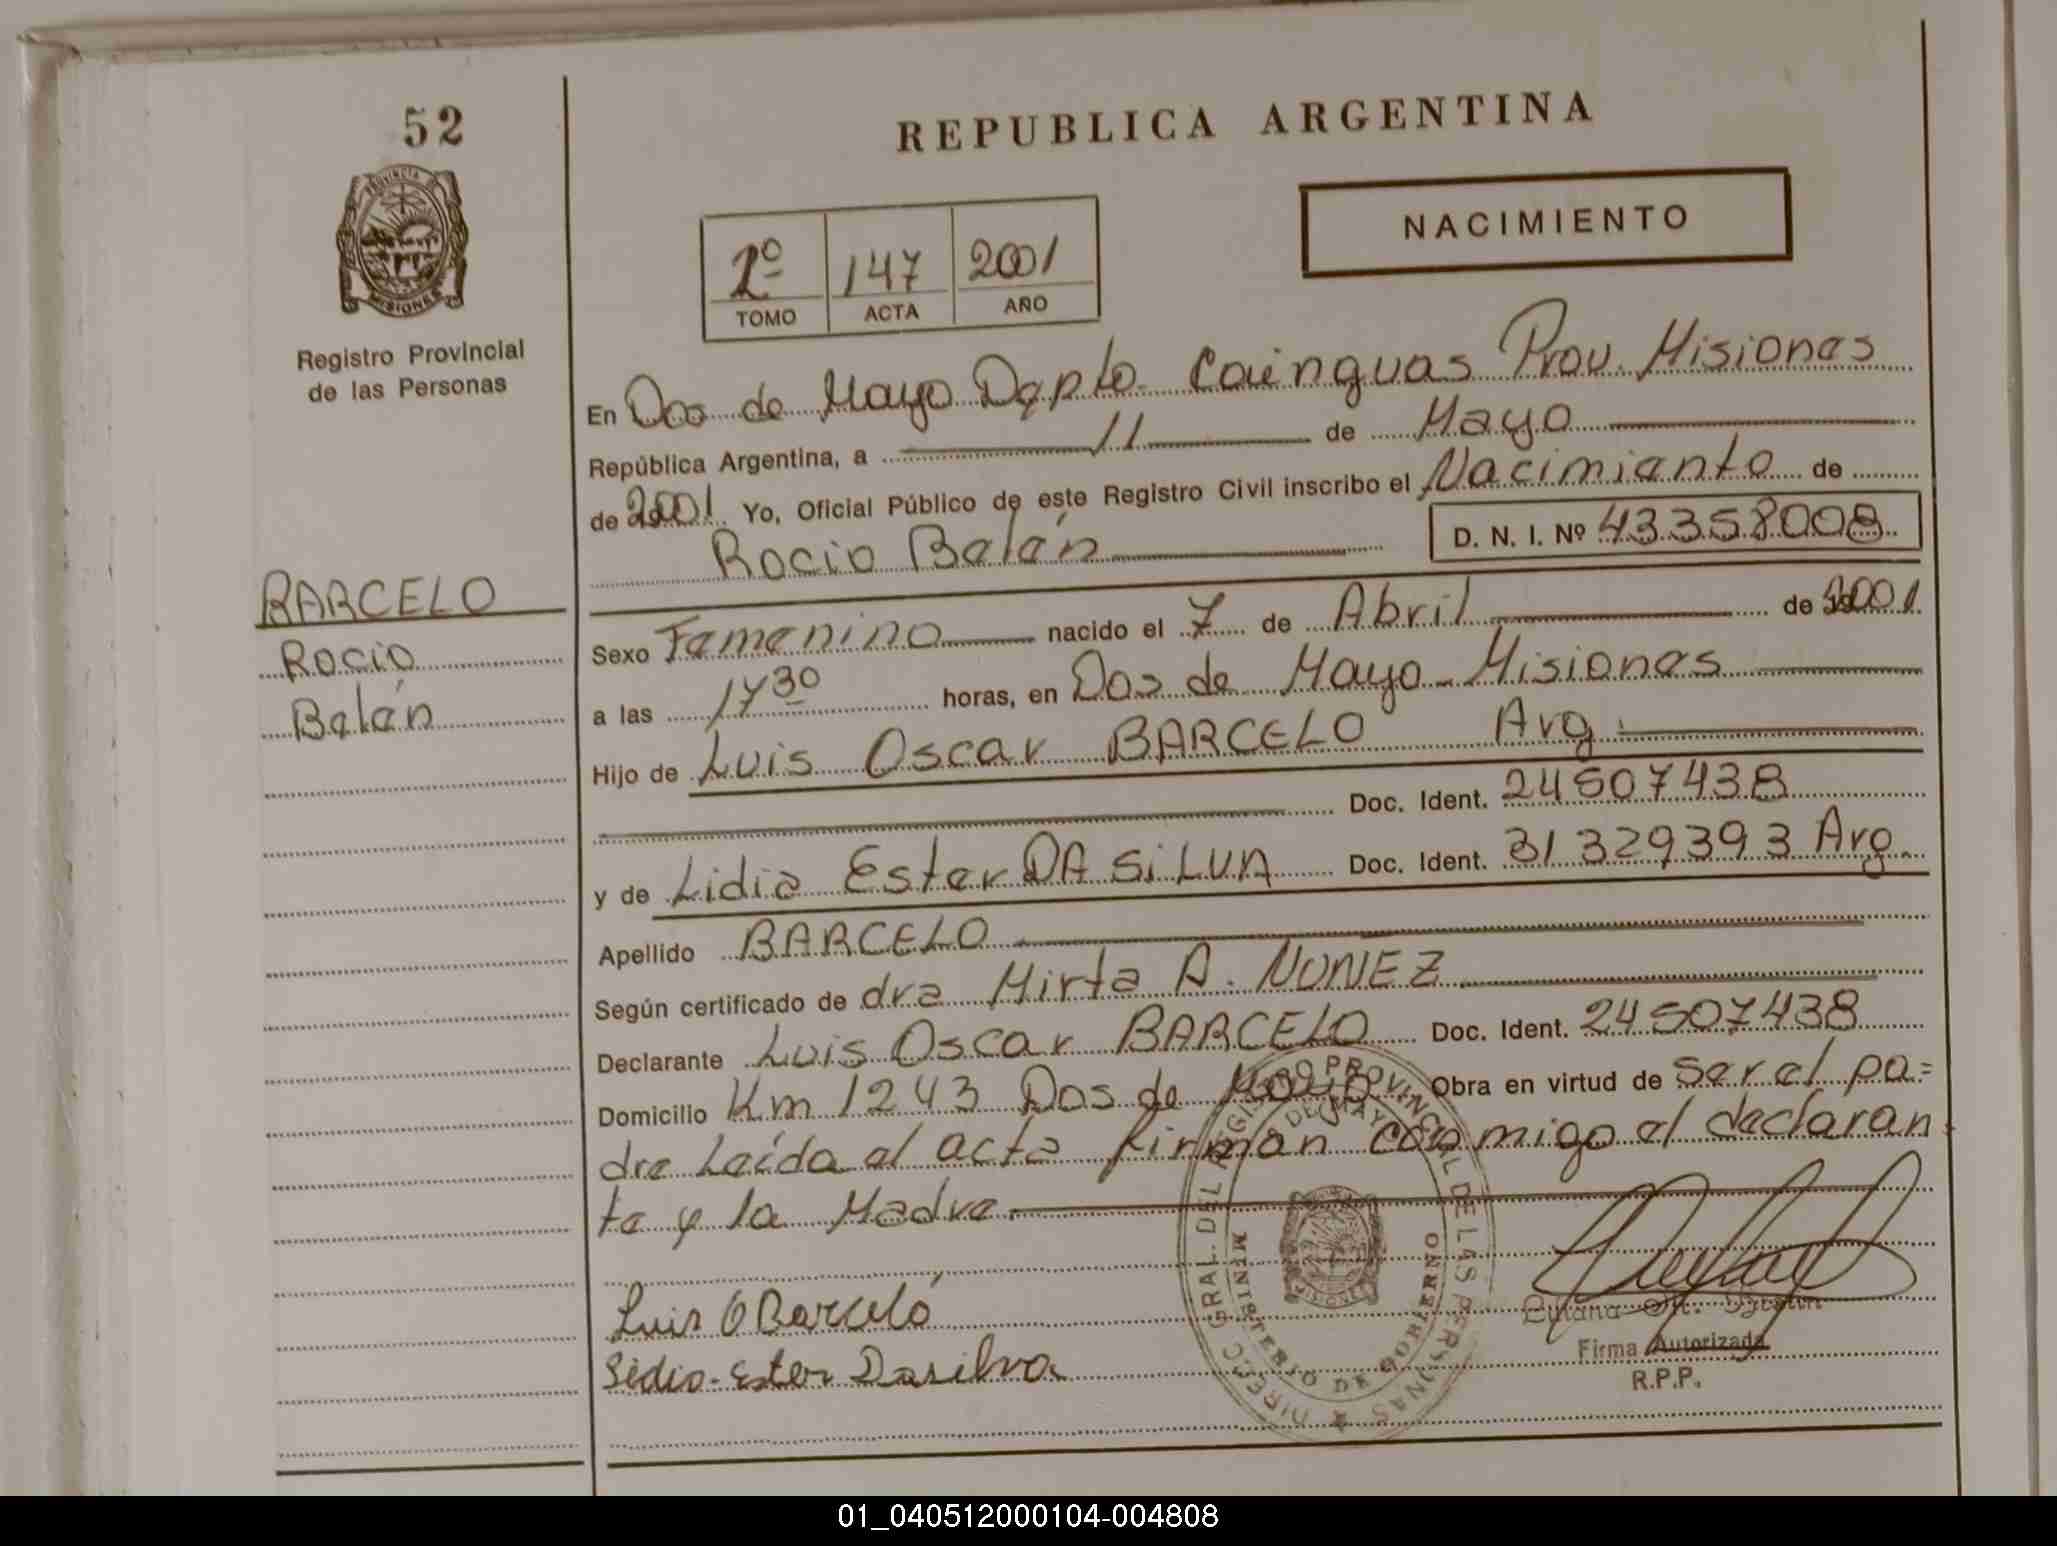 52
REPUBLICA ARGENTINA
PROVINCIA
MISIONES
Registro Provincial
de las Personas
NACIMIENTO
147 2001
TOMO ACTA AÑO
En Dos de Mayo Depto. Cainguas Prov. Misiones
República Argentina, a 11 de Mayo
de 2001 Yo, Oficial Público de este Registro Civil inscribo el Nacimiento de
Rocio Belén
D. N. I. Nº 43358008
BARCELO
Rocio
Belén
Sexo Femenino nacido el 7 de Abril de 2001
a las 17 30 horas, en Dos de Mayo - Misiones
Hijo de Luis Oscar BARCELO Arg.
Doc. Ident. 24507438
y de Lidia Ester DA SILVA Doc. Ident. 31329393 Arg.
Apellido BARCELO
Según certificado de dra Mirta A. NUNEZ
Declarante Luis Oscar BARCELO Doc. Ident. 24507438
Domicilio Km 1243 Dos de Mayo Obra en virtud de ser el pa=
dre Leída el acta firman conmigo el declaran=
te y la Madre.
Luis O Barceló
Lidia-Ester Dasilva
DIRECC GRAL. DEL REGISTRO PROVINCIAL DE LAS PERSONAS
DE MAYO
MINISTERIO DE GOBIERNO
Firma Autorizada
R.P.P.
01_040512000104-004808